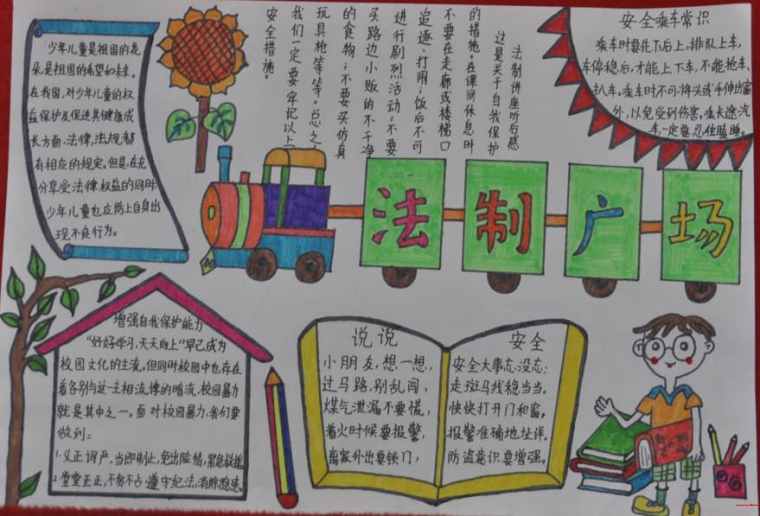 少年儿童是祖国的花
朵是祖国的希望和未来。
在我国，对少年儿童的权
益保护及促进其健康成
长方面，法律，法规都
有相应的规定。但是，在充
分享受法律权益的同时
少年儿童也应防止自身出
现不良行为。
法制讲座听后感
这是关于自我保护
的措施。在课间休息时
不要在走廊或楼梯口
追逐、打闹；饭后不可
进行剧烈活动；不要
买路边小贩的不干净
的食物；不要买仿真
玩具枪等等。总之，
我们一定要牢记以上
安全措施。
安全乘车常识
乘车时要先下后上，排队上车，
车停稳后，才能上下车，不能抢车、
扒车，乘车时不可将头或手伸出窗
外，以免受到伤害，坐长途汽
车一定要忍住瞌睡。
法制广场
增强自我保护能力
“好好学习，天天向上”早已成为
校园文化的主流，但同时校园中也存在
着各别与这一主相流悖的暗流，校园暴力
就是其中之一。面对校园暴力，我们要
做到：
1.义正词严，当即制止，免出险情，紧急求援
2.堂堂正正，不贪不占 遵守纪法，消除隐患。
说说
小朋友，想一想，
过马路，别乱闯，
煤气泄漏不要慌，
着火时候要报警，
离家外出要锁门，
安全
安全大事忘没忘：
走斑马线稳当当。
快快打开门和窗，
报警准确地址详。
防盗意识要增强。